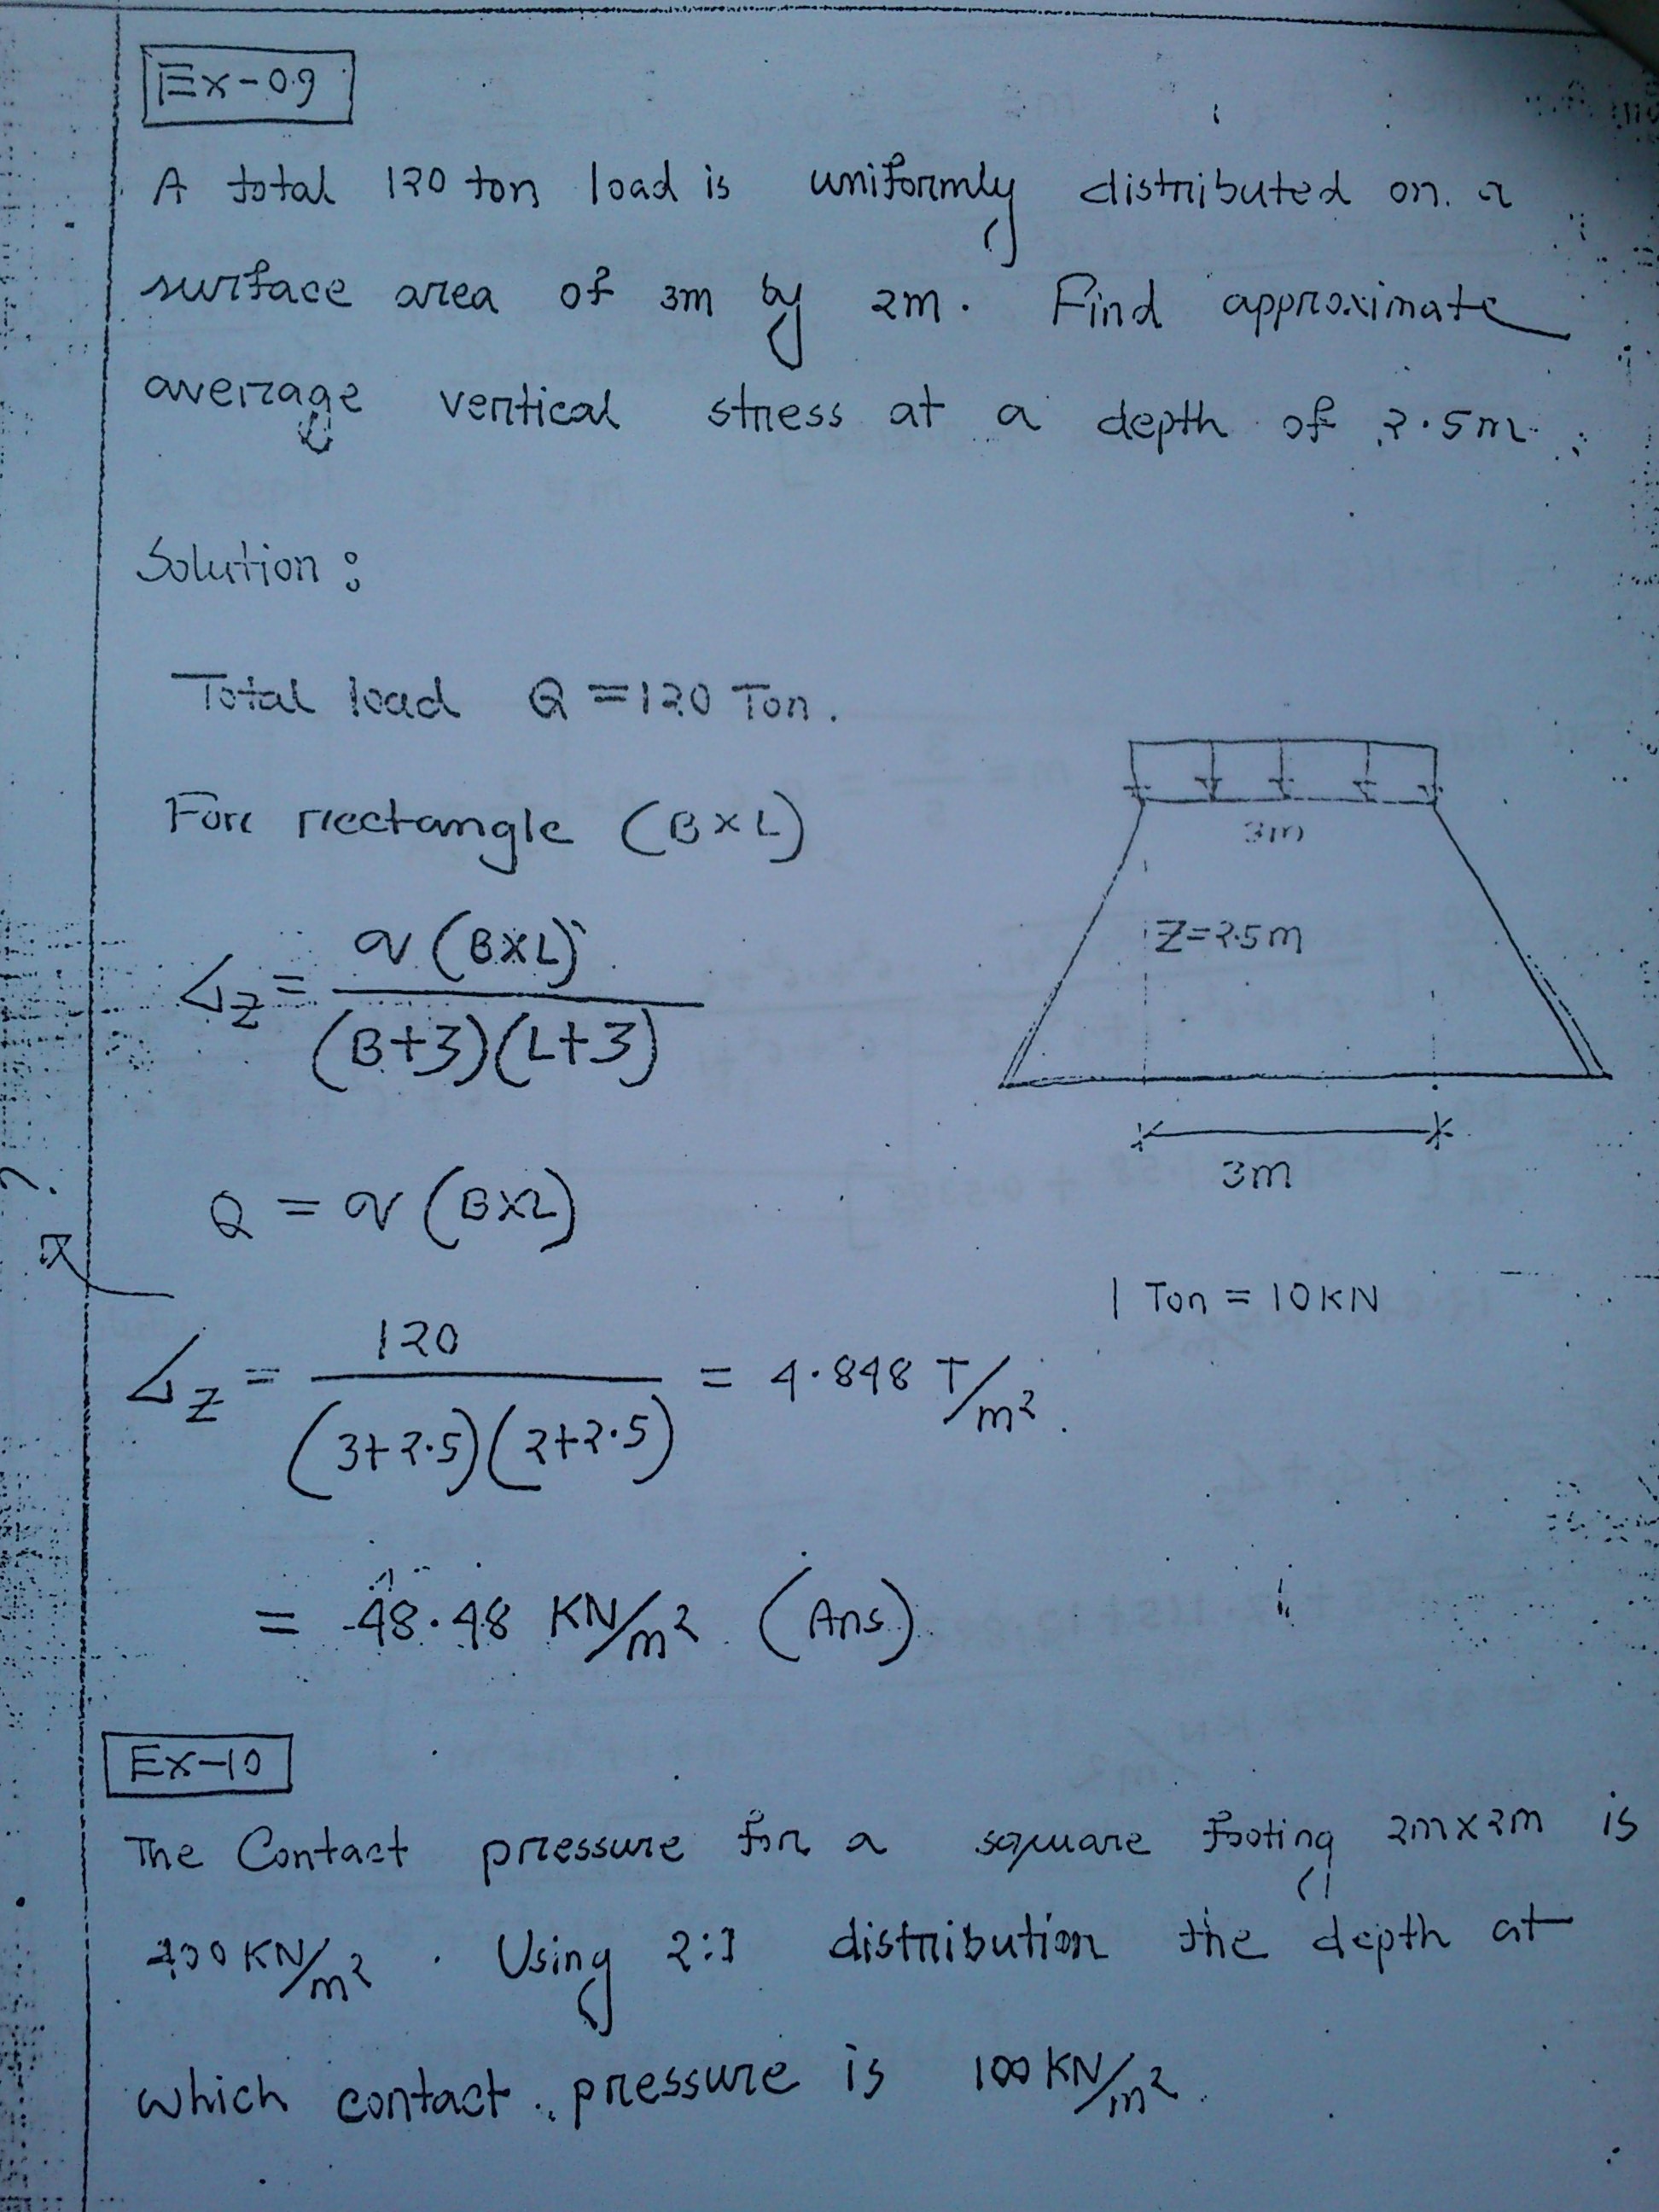 Ex-09
A total 120 ton load is uniformly distributed on a
surface area of 3m by 2m. Find approximate
average vertical stress at a depth of 2.5m.
Solution :
Total load Q = 120 Ton.
For rectangle (B×L)
3m
Z=2.5m
3m
σz = q (B×L) / (B+3)(L+3)
Q = q (B×L)
1 Ton = 10 KN
σz = 120 / (3+2.5)(2+2.5) = 4.848 T/m².
= 48.48 KN/m² (Ans)
Ex-10
The Contact pressure for a square footing 2m×2m is
KN/m². Using 2:1 distribution the depth at
which contact pressure is 100 KN/m².